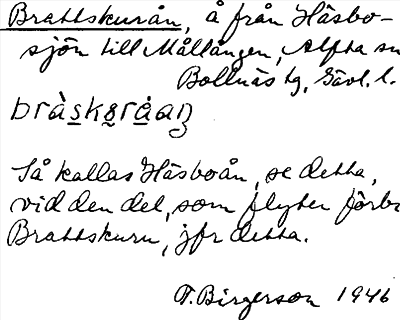 Brattskurån, å från Häsbo-
sjön till Mållången, Alfta sn
Bollnäs tg, Gävl. l.
bràskȣråaŋ
Så kallas Häsboån, se detta,
vid den del, som flyter förbi
Brattskuru, jfr detta.
F. Birgerson 1946